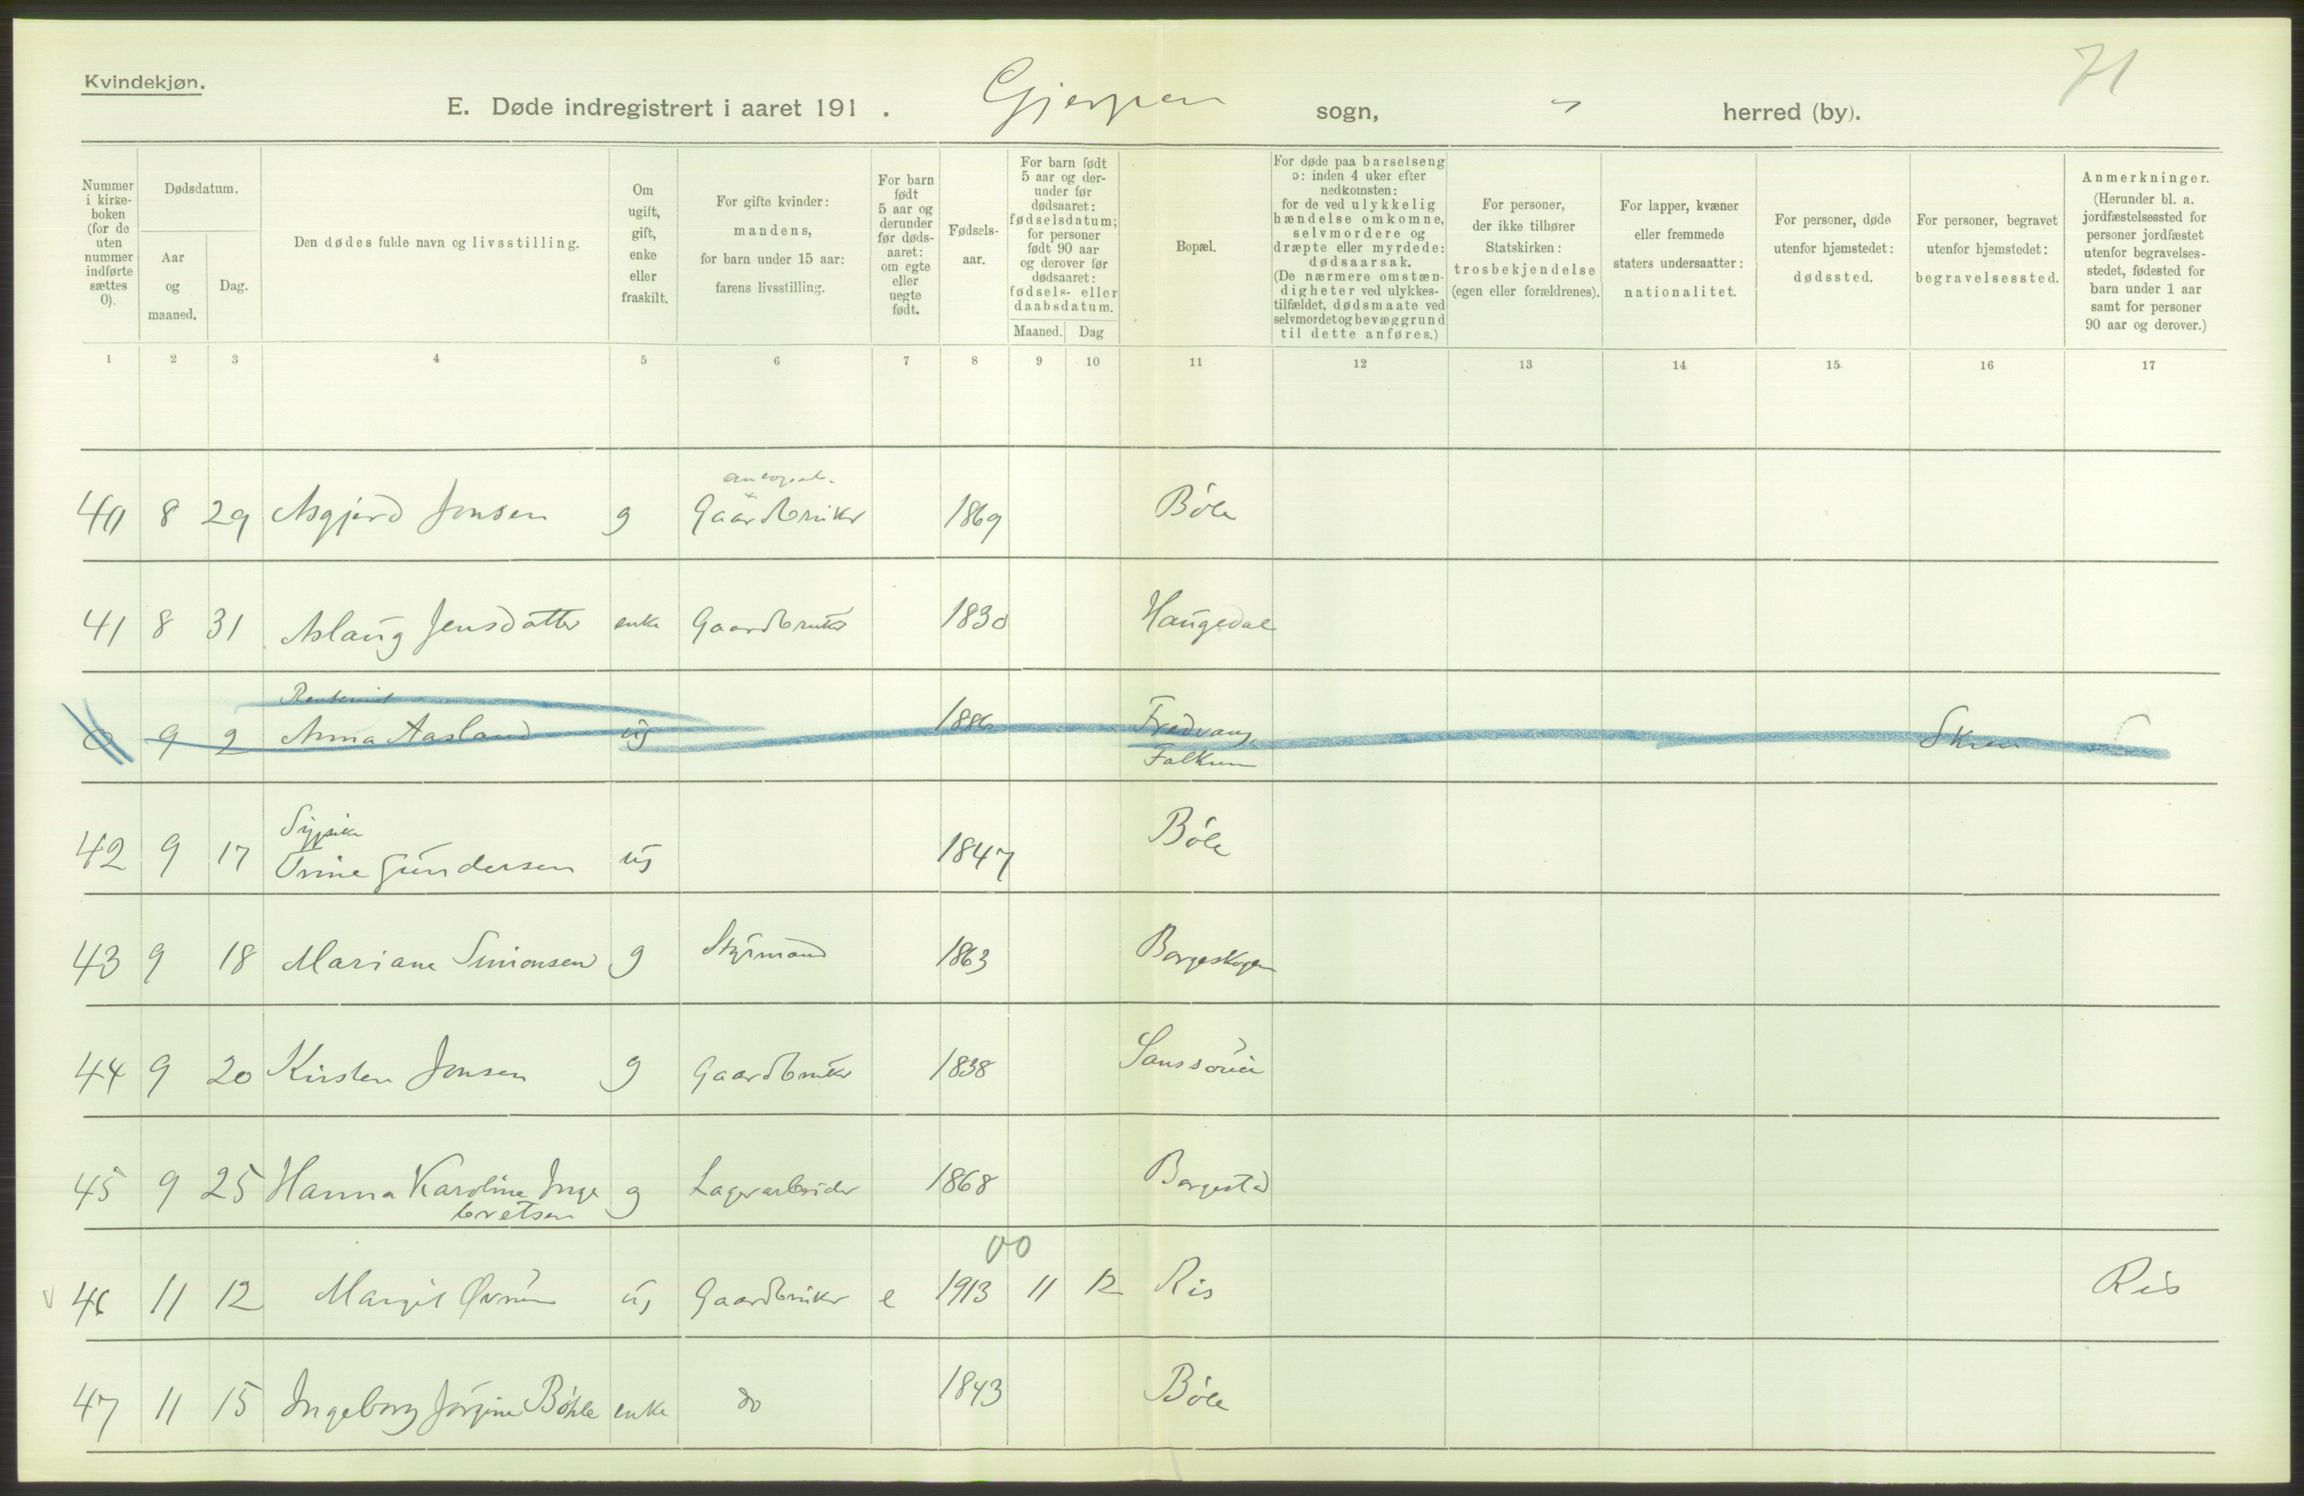 Kvindekjøn.
71
E. Døde indregistrert i aaret 191 . Gjerpen sogn, " herred (by).
Nummer i kirkeboken (for de uten nummer indførte sættes 0).
Dødsdatum.
Aar og maaned.
Dag.
Den dødes fulde navn og livsstilling.
Om ugift, gift, enke eller fraskilt.
For gifte kvinder: mandens, for barn under 15 aar: farens livsstilling.
For barn født 5 aar og derunder før dødsaaret: om egte eller uegte født.
Fødselsaar.
For barn født 5 aar og derunder før dødsaaret: fødselsdatum; for personer født 90 aar og derover før dødsaaret: fødsels- eller daabsdatum.
Maaned. Dag
Bopæl.
For døde paa barselseng ɔ: inden 4 uker efter nedkomsten: for de ved ulykkelig hændelse omkomne, selvmordere og dræpte eller myrdede: dødsaarsak. (De nærmere omstændigheter ved ulykkestilfældet, dødsmaate ved selvmordet og bevæggrund til dette anføres.)
For personer, der ikke tilhører Statskirken: trosbekjendelse (egen eller forældrenes).
For lapper, kvæner eller fremmede staters undersaatter: nationalitet.
For personer, døde utenfor hjemstedet: dødssted.
For personer, begravet utenfor hjemstedet: begravelsessted.
Anmerkninger. (Herunder bl. a. jordfæstelsessted for personer jordfæstet utenfor begravelsesstedet, fødested for barn under 1 aar samt for personer 90 aar og derover.)
1 2 3 4 5 6 7 8 9 10 11 12 13 14 15 16 17
40 8 29 Asgjerd Jonsen g Gaardbruker 1869 Bøle
41 8 31 Aslaug Jensdatter enke Gaardbruker 1830 Haugedal
0 9 2 Anna Aasland ug 1886 Fredvang Skien
Falkum
Sypike
42 9 17 Trine Gundersen ug 1847 Bøle
43 9 18 Mariane Simonsen g Styrmand 1863 Borgeskogen
44 9 20 Kirsten Jonsen g Gaardbruker 1838 Sanssouci
45 9 25 Hanna Karoline Inge g Lagerarbeider 1868 Borgestad
bretsen
00
46 11 12 Margit Øvrum ug Gaardbruker e 1913 11 12 Ris Ris
47 11 15 Ingeborg Jørgine Bøhle enke do 1843 Bøle